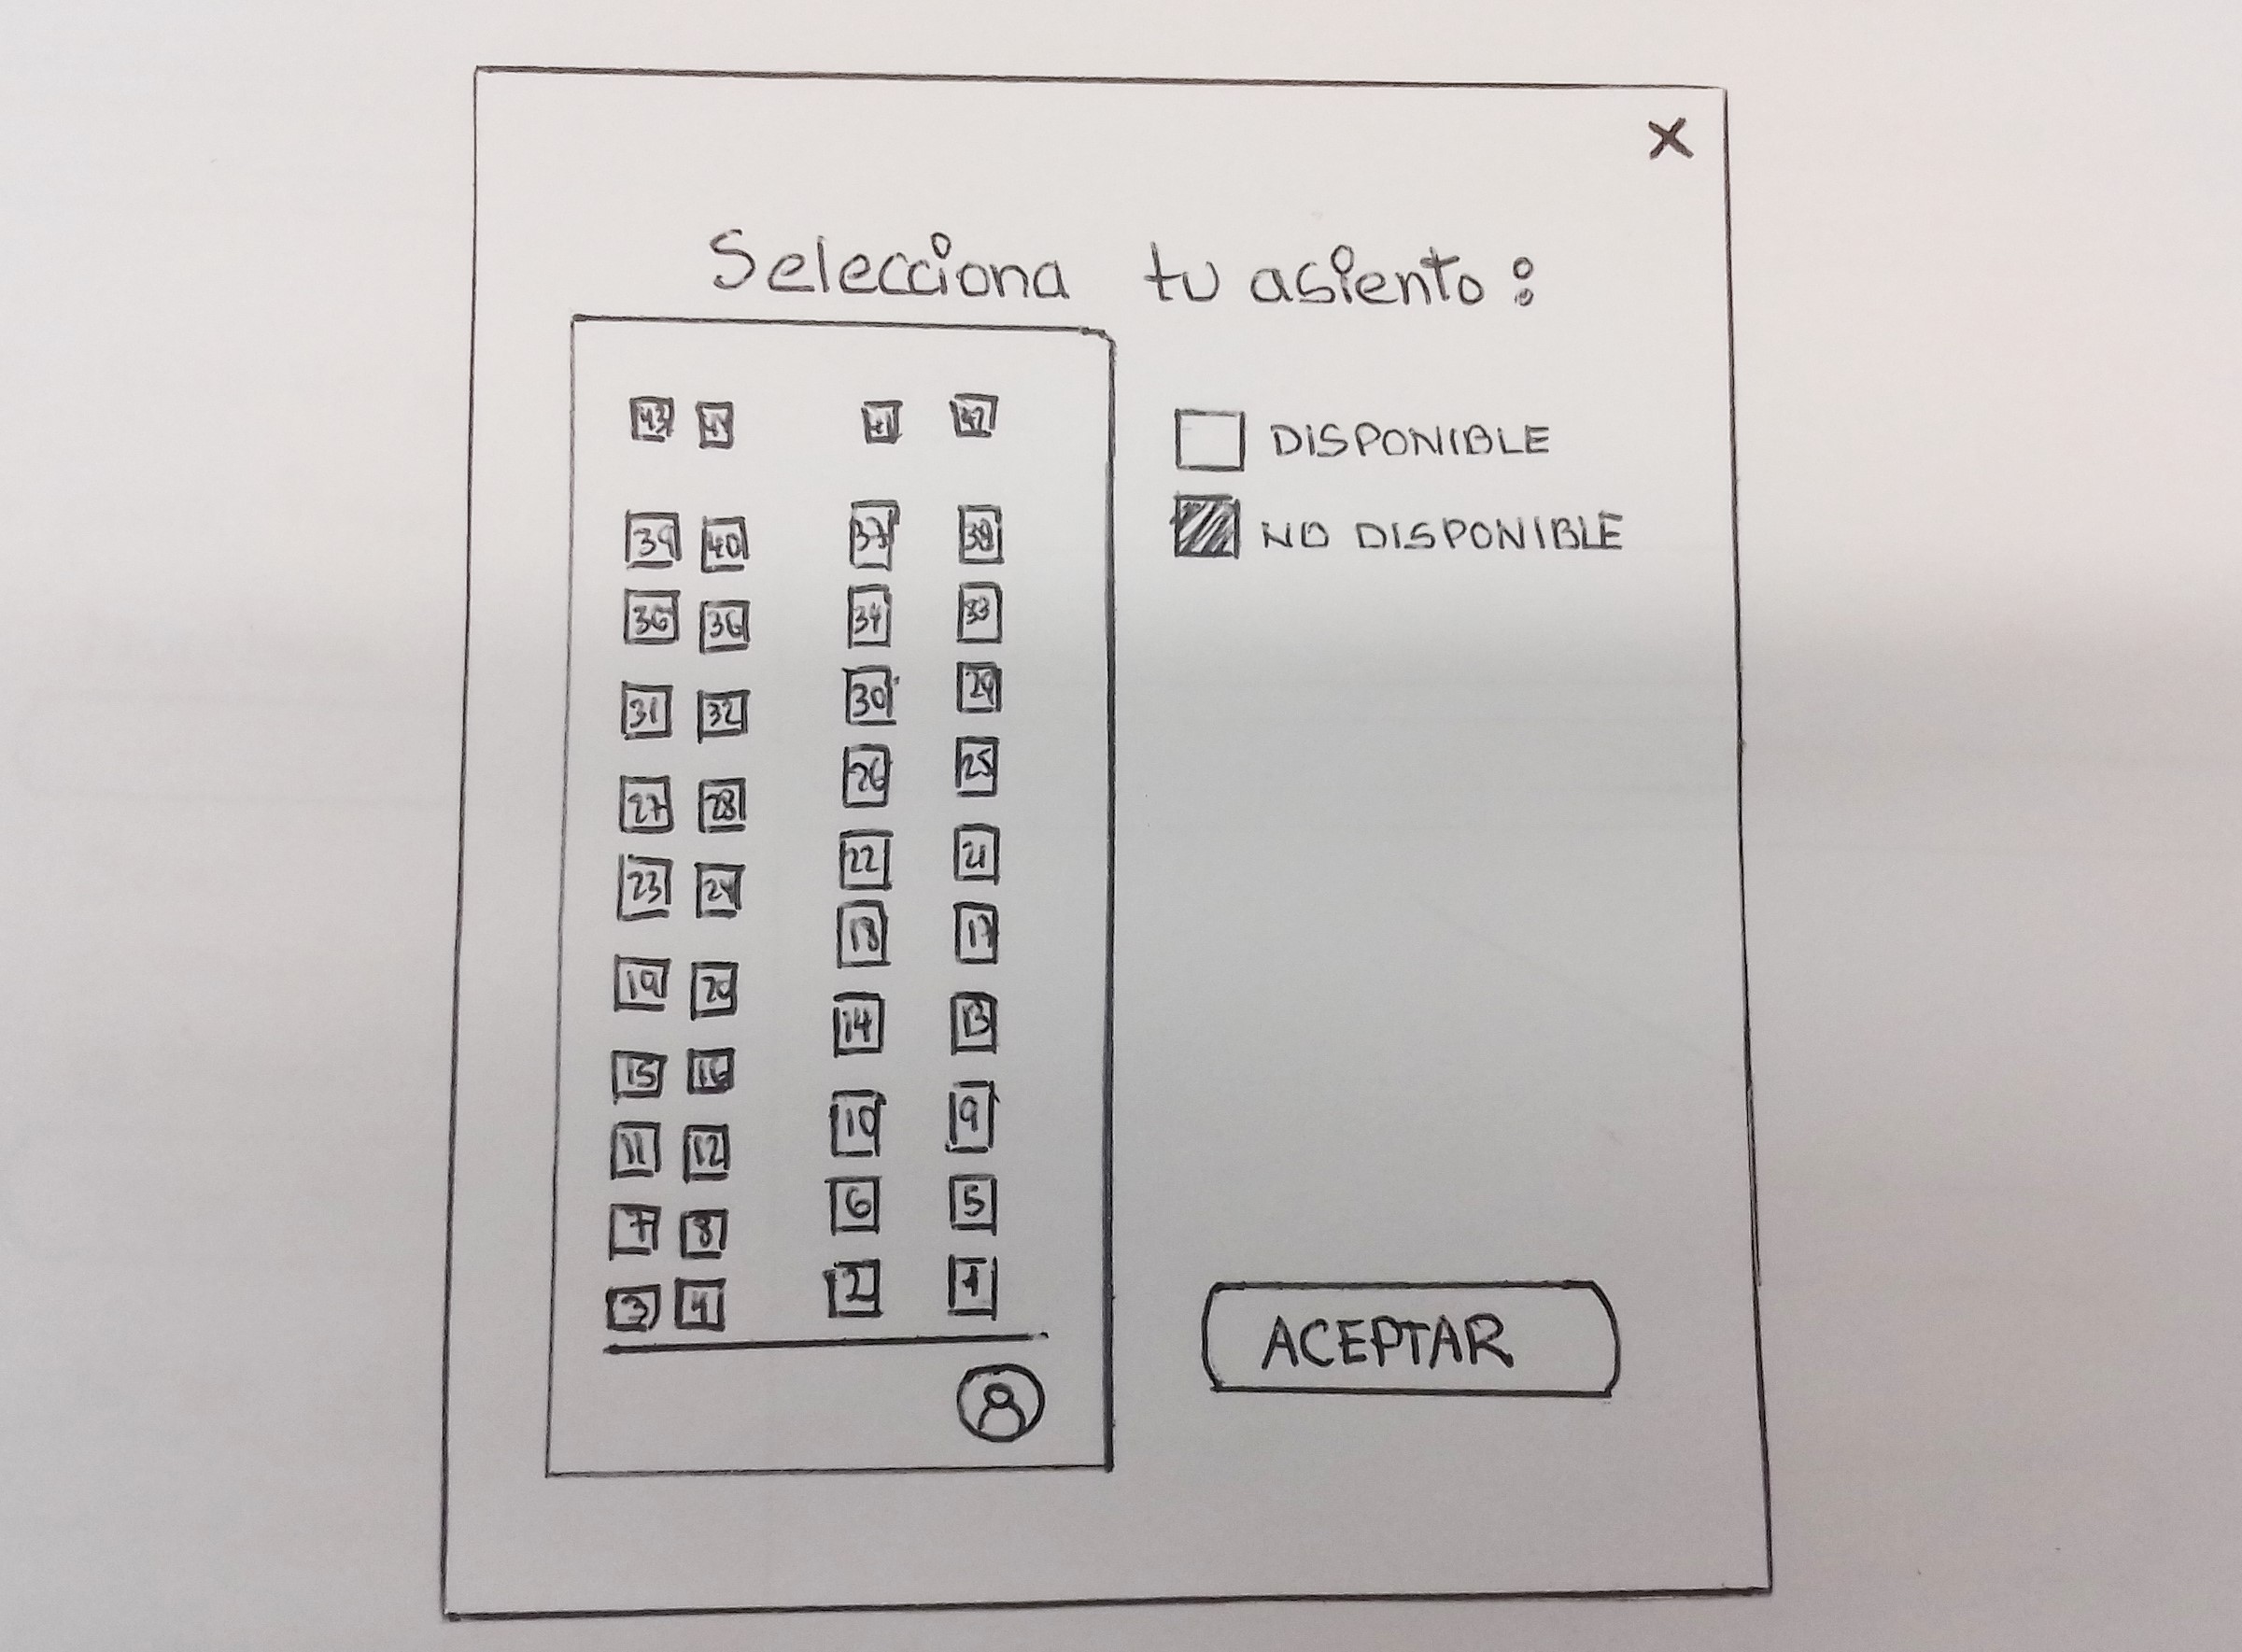 X
Selecciona tu asiento:
43 44 41 42
39 40 37 38
35 36 34 33
31 32 30 29
27 28 26 25
23 24 22 21
19 20 18 17
15 16 14 13
11 12 10 9
7 8 6 5
3 4 2 1
DISPONIBLE
NO DISPONIBLE
ACEPTAR